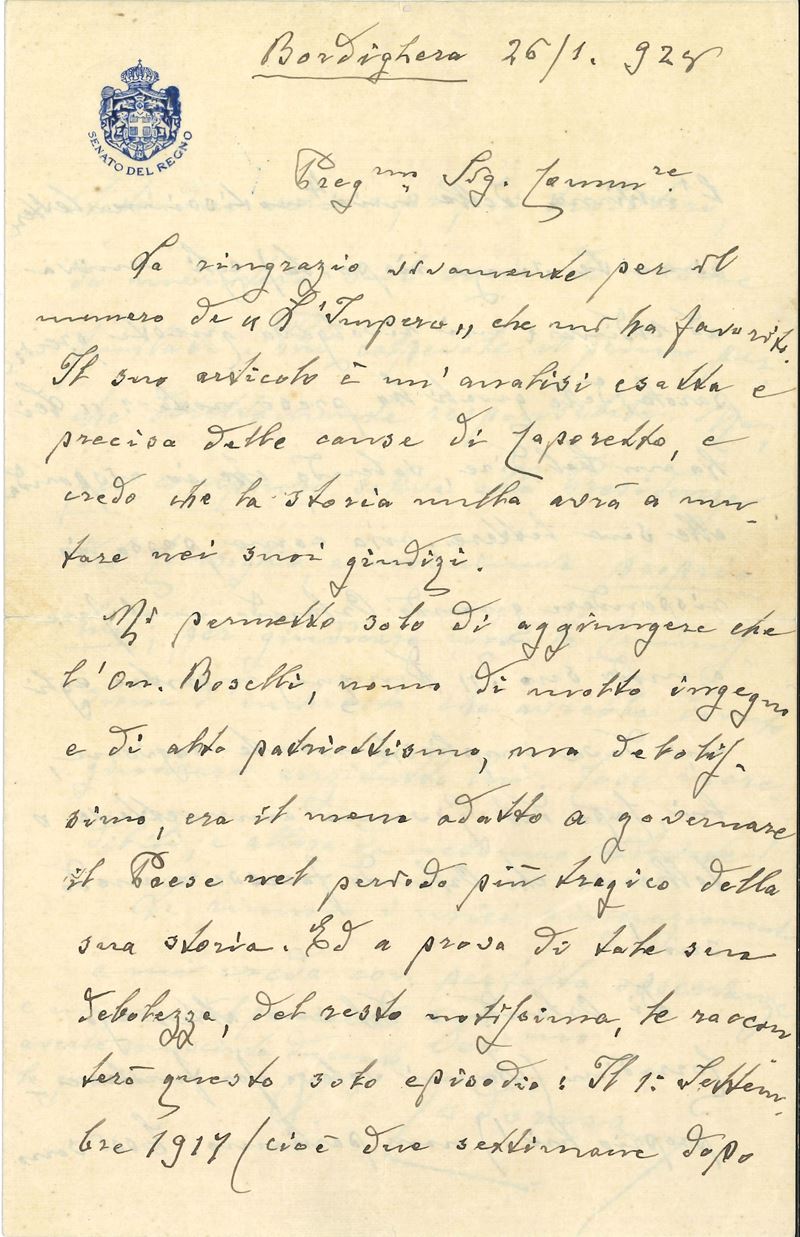 SENATO DEL REGNO
Bordighera 26/1. 928
Preg.mo Sig. Comm.re
La ringrazio vivamente per il
numero de „L'Impero„ che mi ha favorito.
Il suo articolo è un'analisi esatta e
precisa delle cause di Caporetto, e
credo che la storia nulla avrà a mu-
tare nei suoi giudizi.
Mi permetto solo di aggiungere che
l'On. Boselli, uomo di molto ingegno
e di alto patriottismo, ma debolis-
simo, era il meno adatto a governare
il Paese nel periodo più tragico della
sua storia. Ed a prova di tale sua
debolezza, del resto notissima, le raccon
terò questo solo episodio: Il 1° Settem-
bre 1917 (cioè due settimane dopo